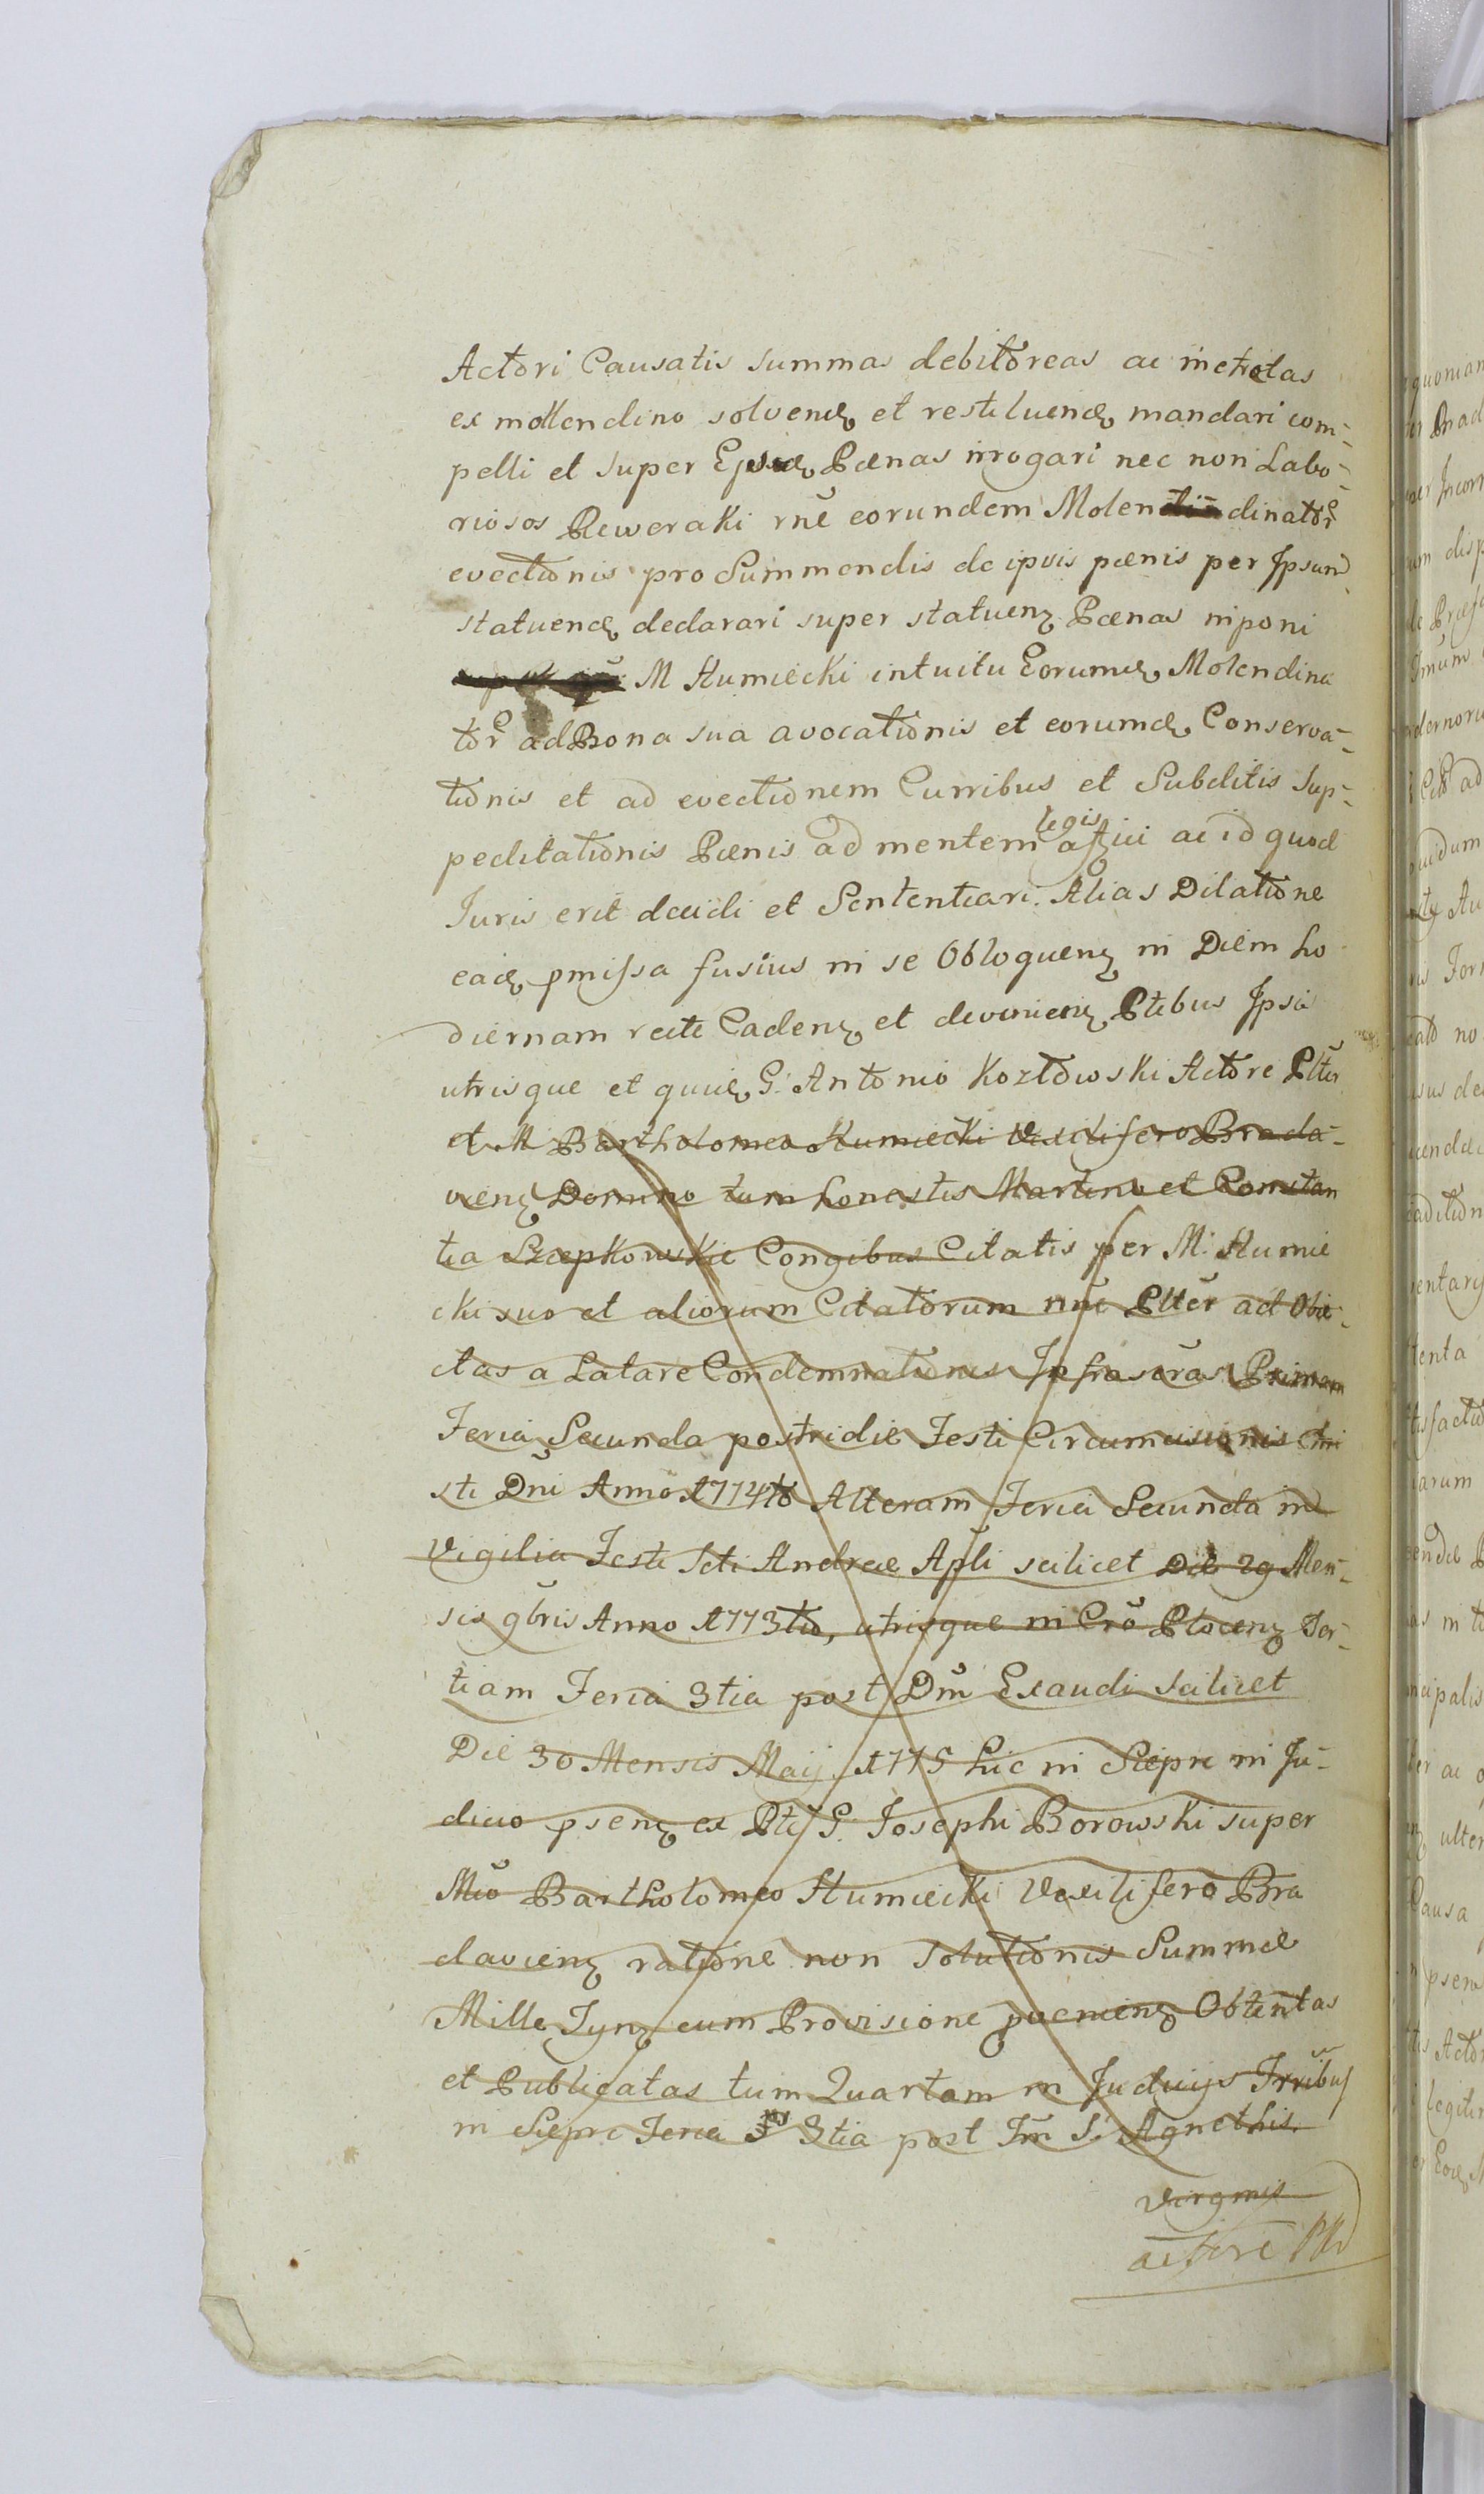 Actori Causatis summas debitoreas ac metretas
ex mollendino solvend et restituend mandari com-
pelli et super Poenas irrogari nec non Labo-
riosos Pieweraki rne eorundem Molen dinator
evectionis pro Summendis de ipsis poenis per Ipsum
statuend declarari super statuen Poenas niponi
M Humiecki intuitu Eorumd Molendina
tor ad Bona sua avocationis et eorumd Conserva-
tionis et ad evectionem Curribus et Subditis Sup-
peditationis Poenis ad mentem legis ac id quod
Iuris erit decidi et Sententiari. Alias Dilatione
ead pmissa fusius in se Obloquen in Diem ho
diernam recte Caden et devenien Ptebus Ipsis
utrisque et quid G. Antonio Kozłowski Actore Plter
et M Bartholomeo Humiecki Vexilifero Brada-
vien Domino tum honestis Martino et Constan
tia Szczepkowskie Congibus Citatis per M. Humie
cki suo et aliorum Citatorum nne Plter ad Obie-
ctas a Latare Condemnationes Infrascras Primam
Feria Secunda postridie Festi Circumcisionis Chri
sti Dni Anno 1774to Alteram Feria Secunda in
Vigilia Festi Scti Andreae Apli scilicet Die 29 Men-
sis 9bris Anno 1773tio, utrisque in Cro Plocen Ter-
tiam Feria 3tia post Dm Exaudi scilicet
Die 30 Mensis Maij 1775 hic in Siepre in Ju-
dicio psen ex Pte G. Josephi Borowski super
Mco Bartholomeo Humiecki Vexilifero Bra
clavien ratione non Solutionis Summae
Mille Tyn cum Provisione Obtentas
et Publicatas tum Quartam in Judicijs Trribus
in Siepre Feria 3tia post Fm S. Agnethis.
Virginis
actore